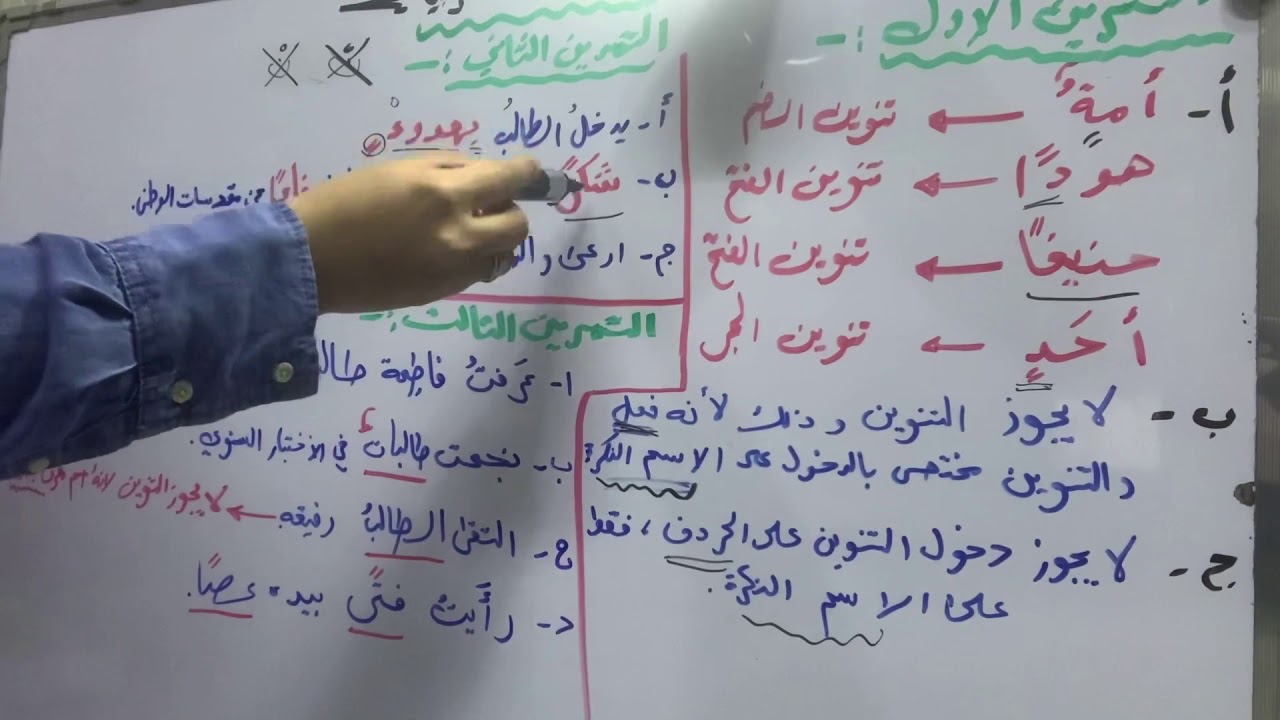 التمرين الأول :-
أ- أمةٌ ← تنوين الضم
هودًا ← تنوين الفتح
حنيفًا ← تنوين الفتح
أحَدٍ ← تنوين الجر
ب- لا يجوز التنوين وذلك لأنه فعل
والتنوين مختص بالدخول على الاسم النكرة
ج- لا يجوز دخول التنوين على الحروف، فقط
على الاسم النكرة.
التمرين الثاني :-
أ- يدخلُ الطالبُ بهدوءٍ
ب- من مقدسات الوطن.
ج- ارعى
التمرين الثالث :-
ا- عرفتُ فاطمة
ب- نجحت طالباتٌ في الاختبار السنوي.
ج- التقى الطالبُ رفيقه ← لا يجوز التنوين لأنه اسم
د- رأيتُ فتًى بيده عصًا.